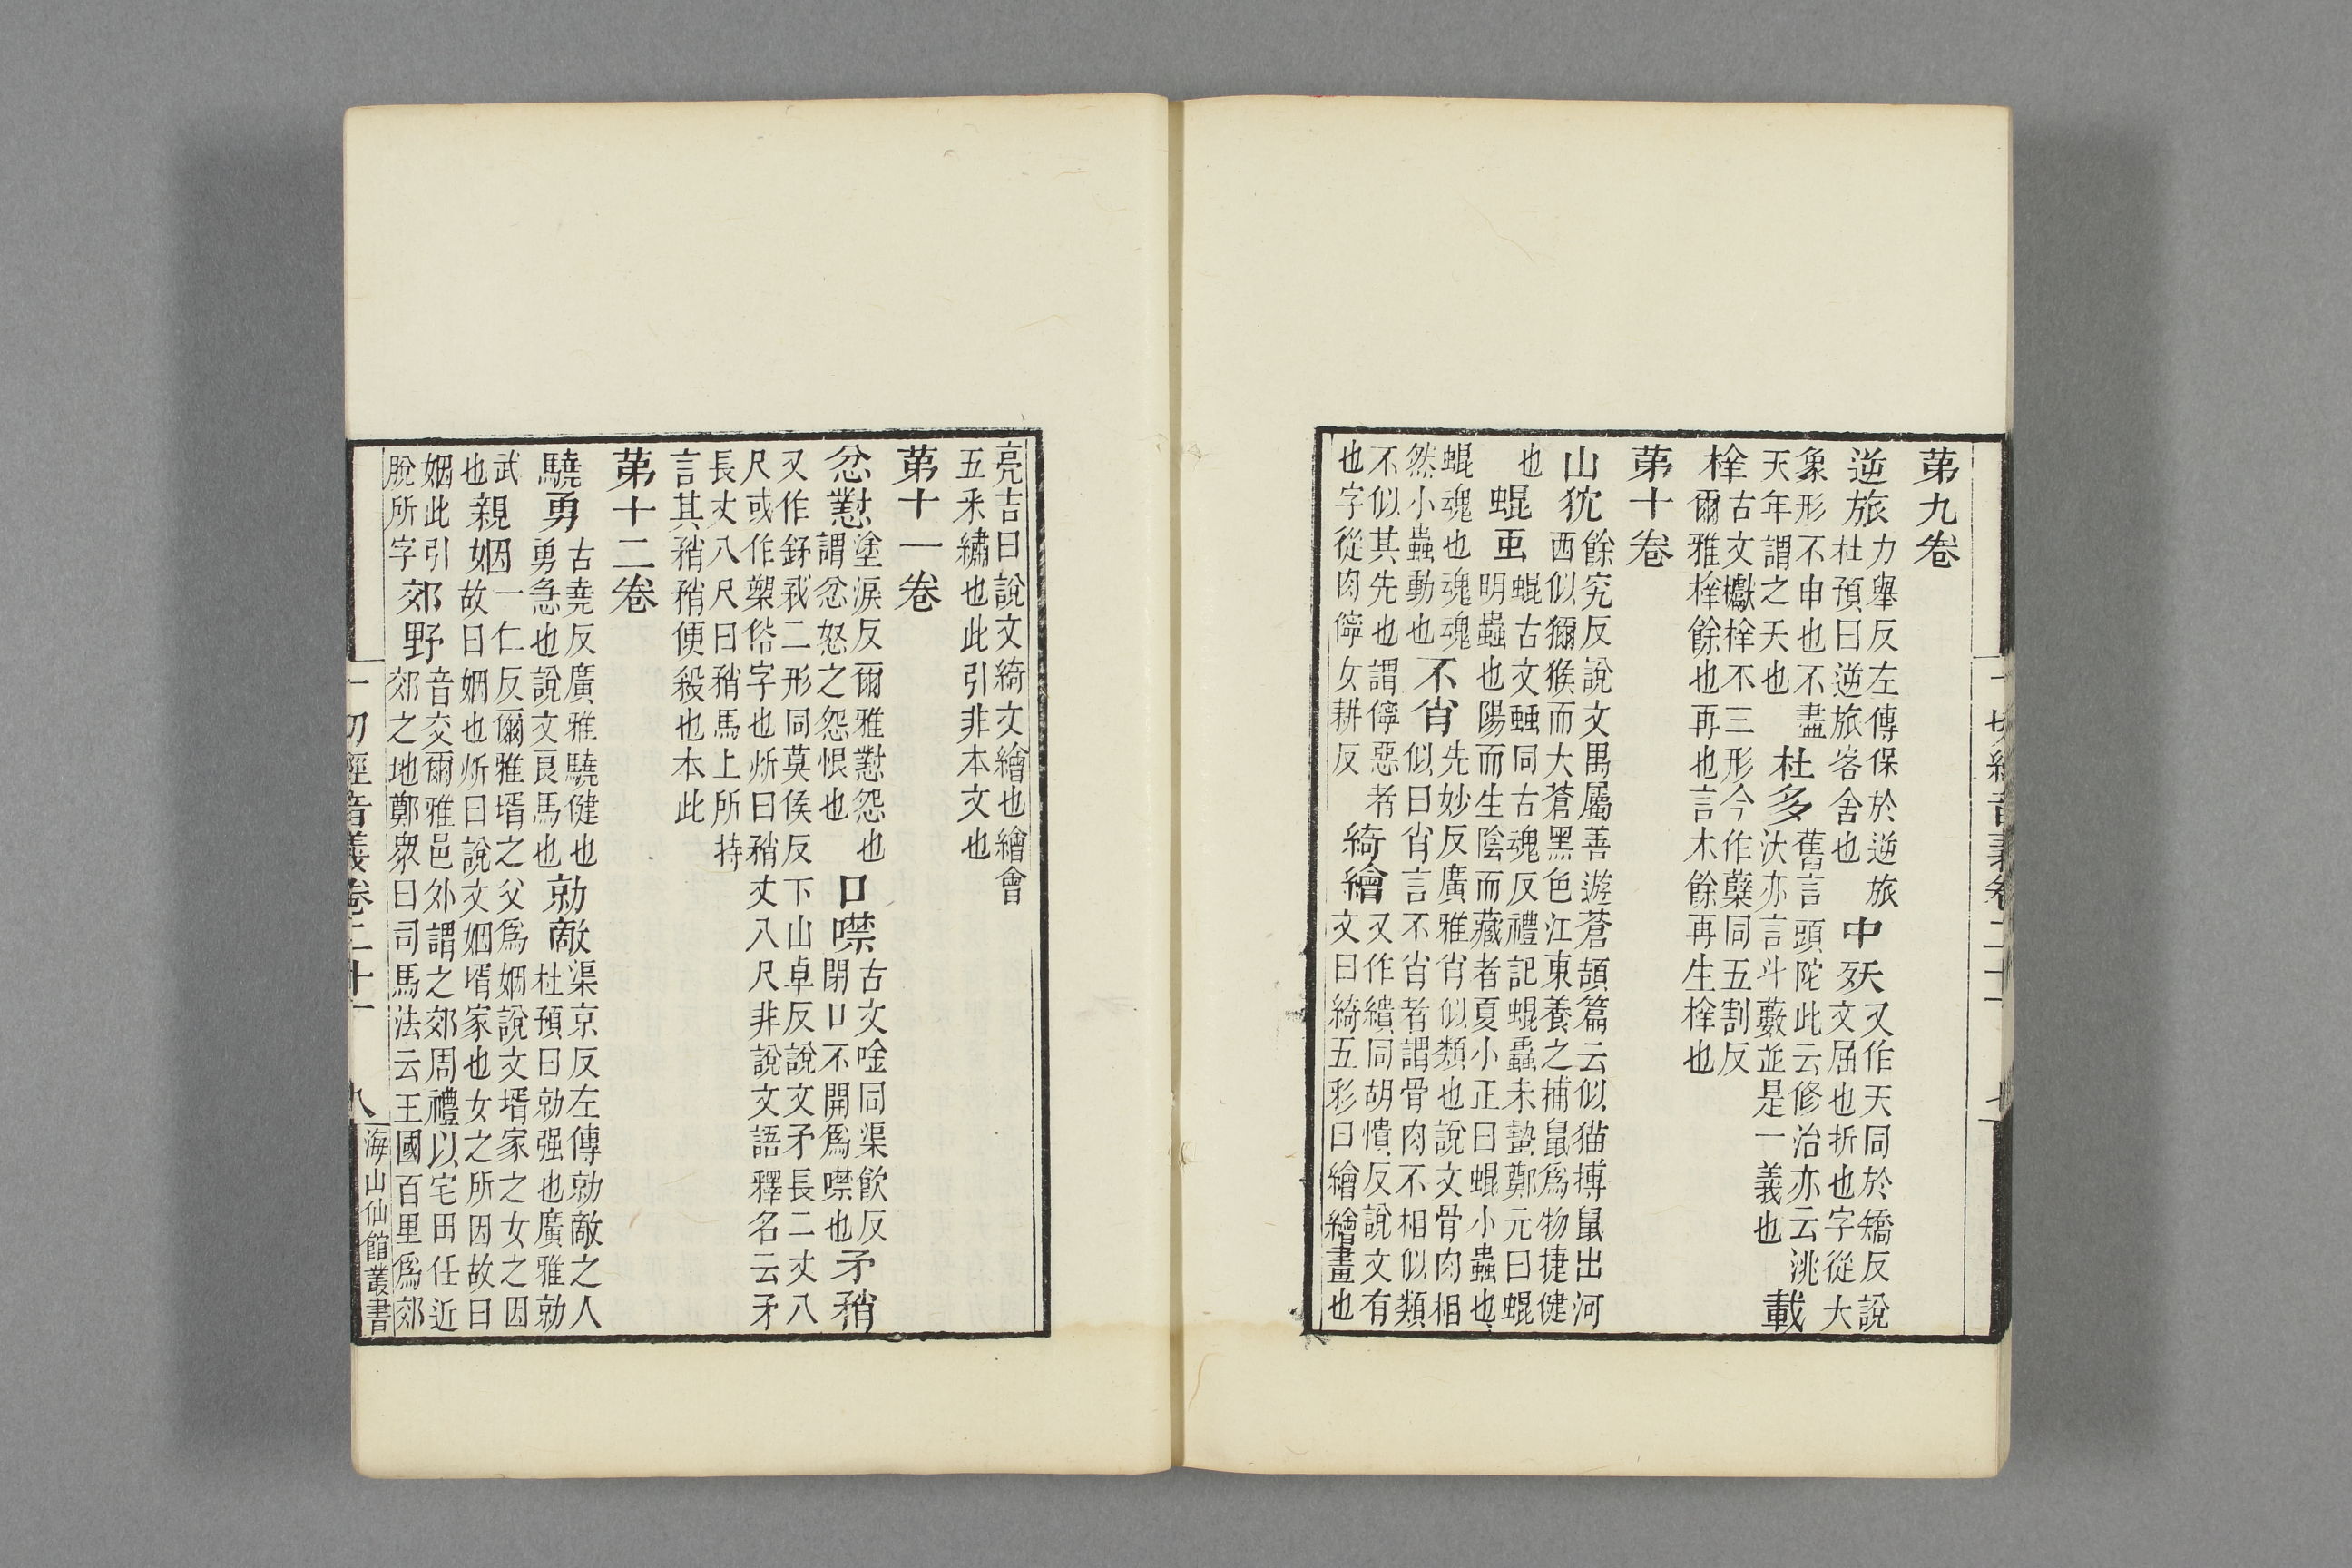 第九卷
逆旅力舉反左傳保於逆旅杜預曰逆旅客舍也中殀又作夭同於矯反說文屈也折也字從大
象形不申也不盡天年謂之夭也杜多舊言頭陀此云修治亦云洮汰亦言斗藪並是一義也載
枿古文㰕枿不三形今作蘖同五割反爾雅枿餘也再也言木餘再生枿也
第十卷
山狖餘究反說文禺屬善遊蒼頡篇云似猫搏鼠出河西似獼猴而大蒼黑色江東養之捕鼠爲物捷健
也蜫蜫古文䖵同古魂反禮記蜫蟲未蟄鄭元曰蜫明蟲也陽而生陰而藏者夏小正曰蜫小蟲也
蜫魂也魂魂然小蟲動也不肖先妙反廣雅肖似類也說文骨肉相似曰肖言不肖者謂骨肉不相似類
不似其先也謂儜惡者也字從肉儜女耕反綺繪又作繢同胡憒反說文有文曰綺五彩曰繪繪畫也
亮吉曰說文綺文繪也繪會五釆繡也此引非本文也
第十一卷
忿懟塗淚反爾雅懟怨也謂忿怒之怨恨也口噤古文唫同渠飲反閉口不開爲噤也矛矟
又作釨二形同莫侯反下山卓反說文矛長二丈八尺或作槊俗字也炘曰矟丈八尺非說文語釋名云矛
長丈八尺曰矟馬上所持言其矟矟便殺也本此
第十二卷
驍勇古堯反廣雅驍健也勇急也說文良馬也勍敵渠京反左傳勍敵之人杜預曰勍强也廣雅勍
武也親姻一仁反爾雅壻之父爲姻說文壻家之女之因故曰姻也炘曰說文姻壻家也女之所因故曰
姻此引脫所字郊野音交爾雅邑外謂之郊周禮以宅田任近郊之地鄭衆曰司馬法云王國百里爲郊
一切經音義卷二十一
九
海山仙館叢書